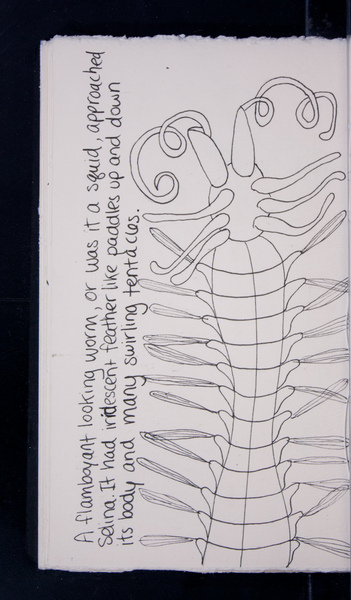 A flamboyant looking worm, or was it a squid, approached
Selina. It had iridescent feather like paddles up and down
its body and many swirling tentacles.